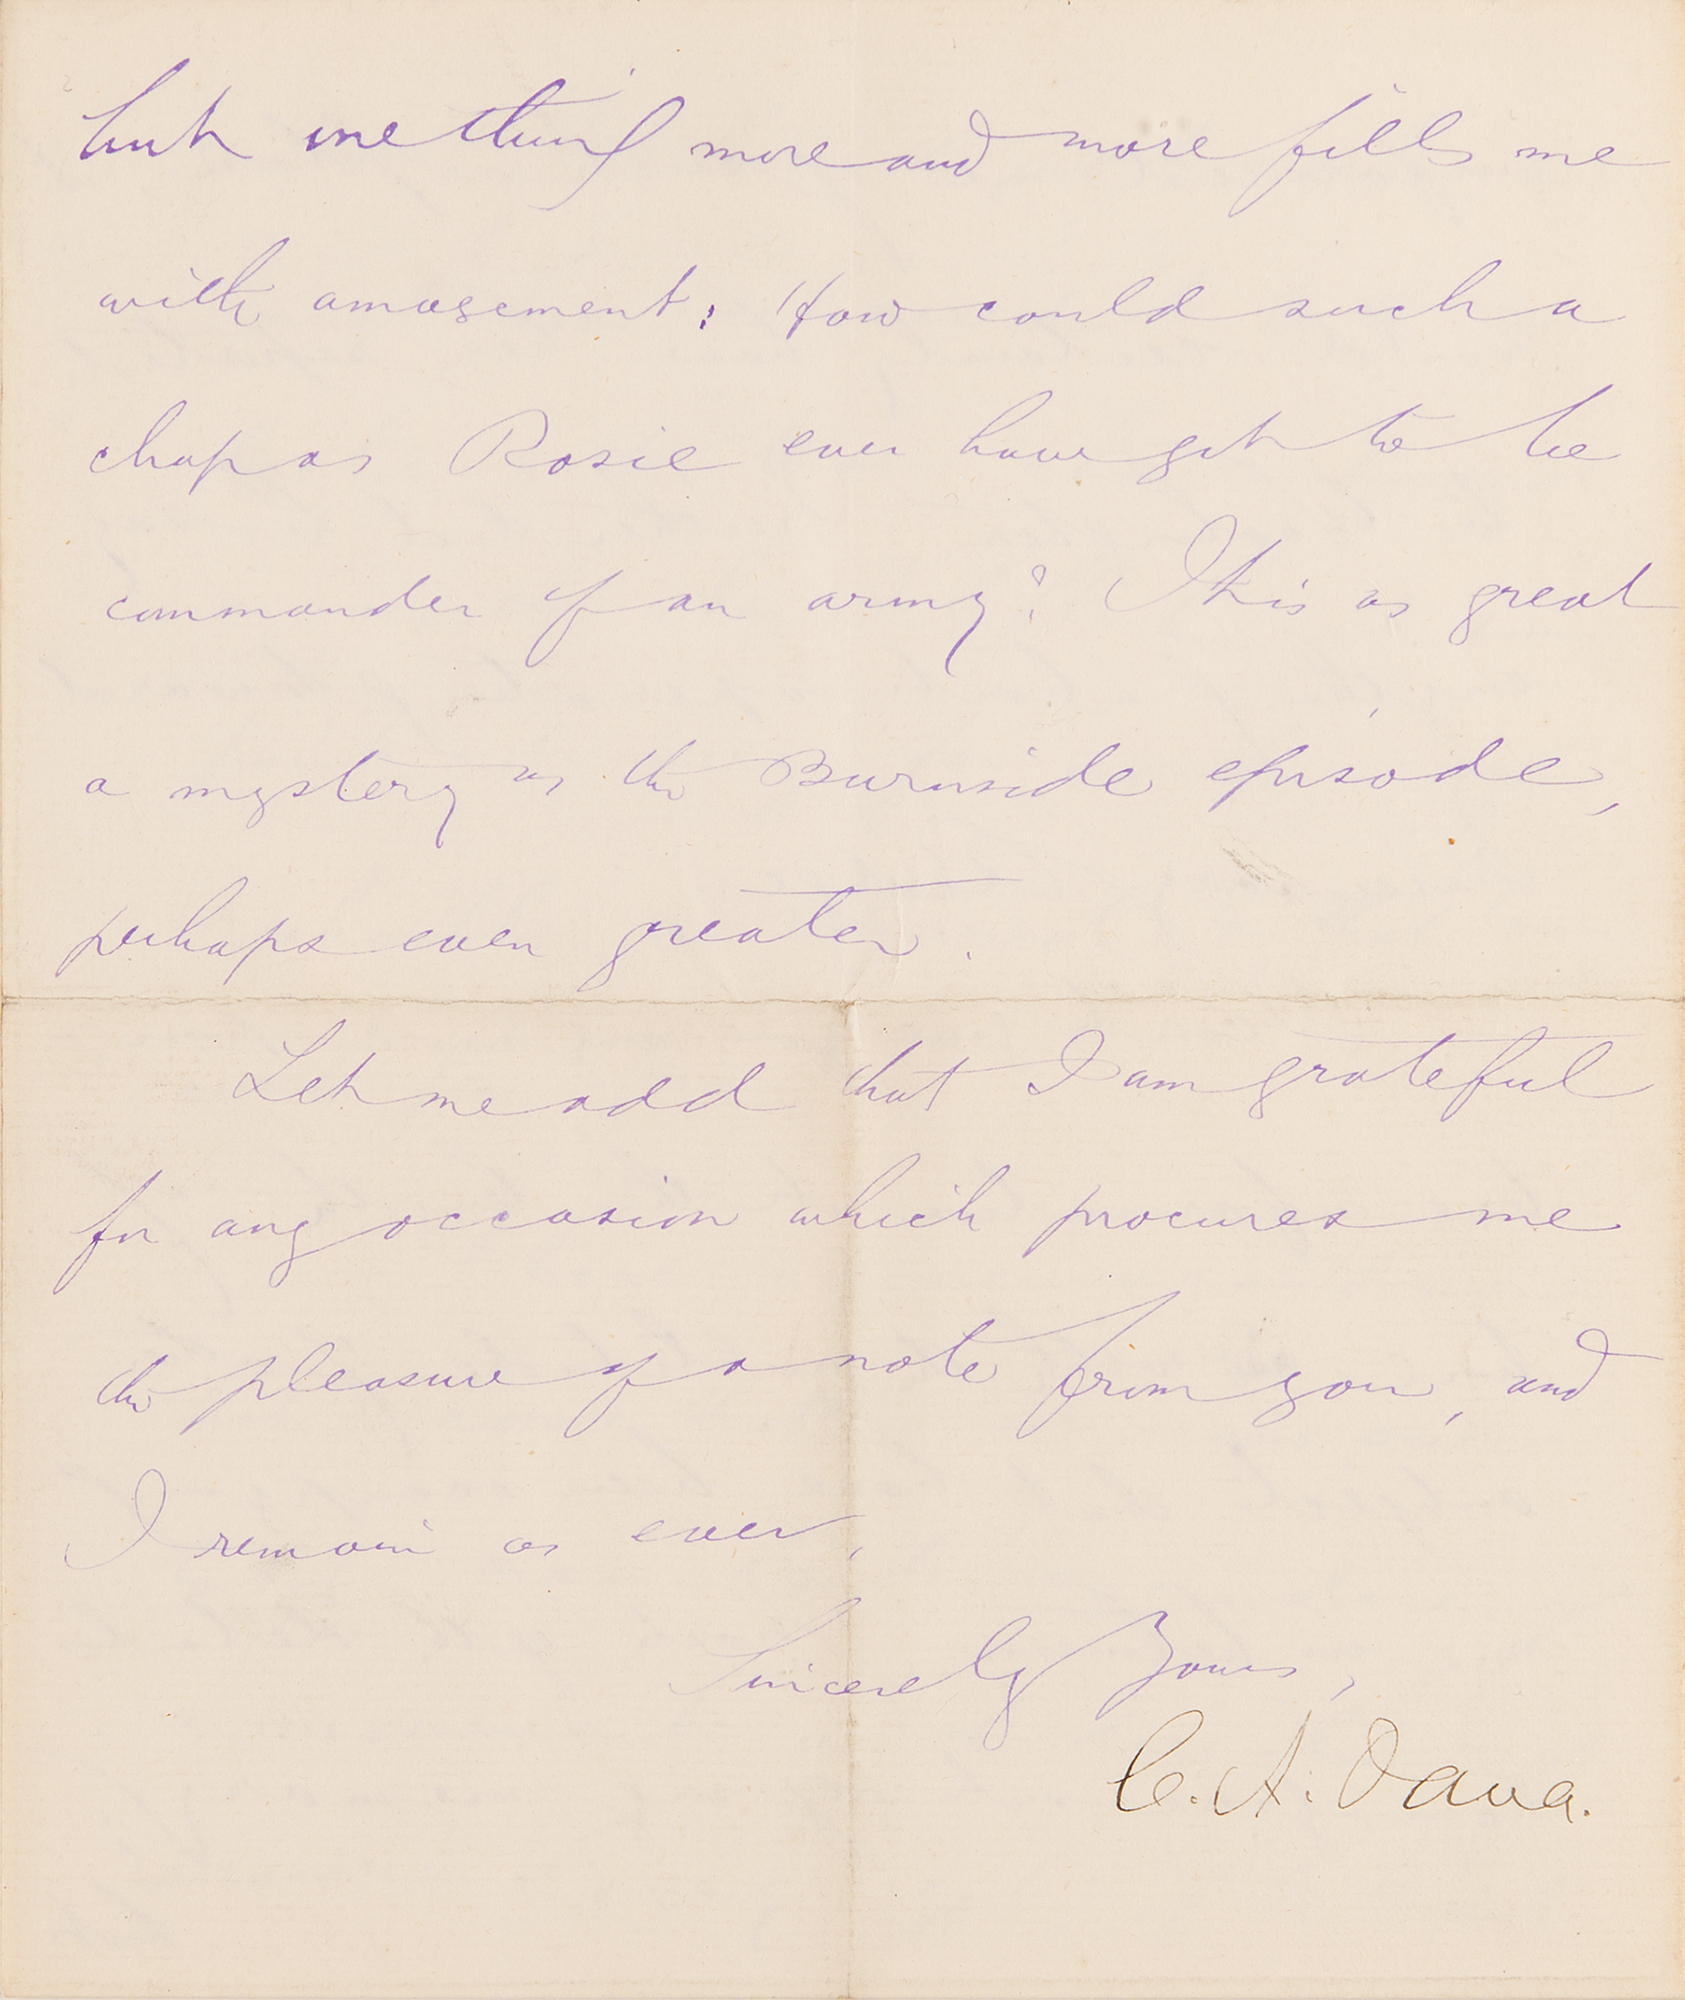 but one thing more and more fills me
with amusement: How could such a
chap as Rosie ever have got to be
commander of an army? It is as great
a mystery as the Burnside episode,
perhaps even greater.
Let me add that I am grateful
for any occasion which procures me
the pleasure of a note from you, and
I remain as ever,
Sincerely Yours,
C. A. Dana.